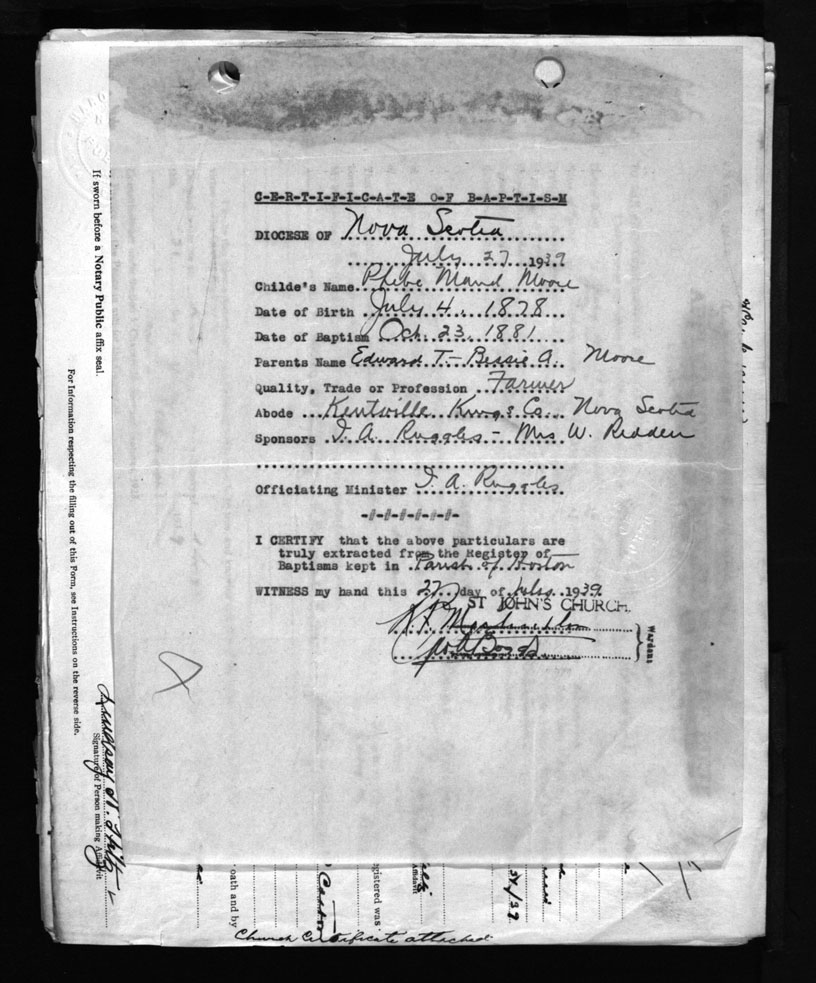 C-E-R-T-I-F-I-C-A-T-E O-F B-A-P-T-I-S-M
DIOCESE OF Nova Scotia
July 27 1939
Childe's Name Phebe Maud Moore
Date of Birth July 4. 1878
Date of Baptism Oct. 23. 1881
Parents Name Edward T. - Bessie A. Moore
Quality, Trade or Profession Farmer
Abode Kentville Kings Co. Nova Scotia
Sponsors J. A. Ruggles - Mrs W. Redden
Officiating Minister J. A. Ruggles
-#-#-#-#-#-#-
I CERTIFY that the above particulars are
truly extracted from the Register of
Baptisms kept in Parish of
WITNESS my hand this 27 day of July 1939
ST JOHN'S CHURCH.
Wardens
If sworn before a Notary Public affix seal.
For Information respecting the filling out of this Form, see Instructions on the reverse side.
Lindsay
Signature of Person making Affidavit
oath and by
egistered was
Church Certificate attached